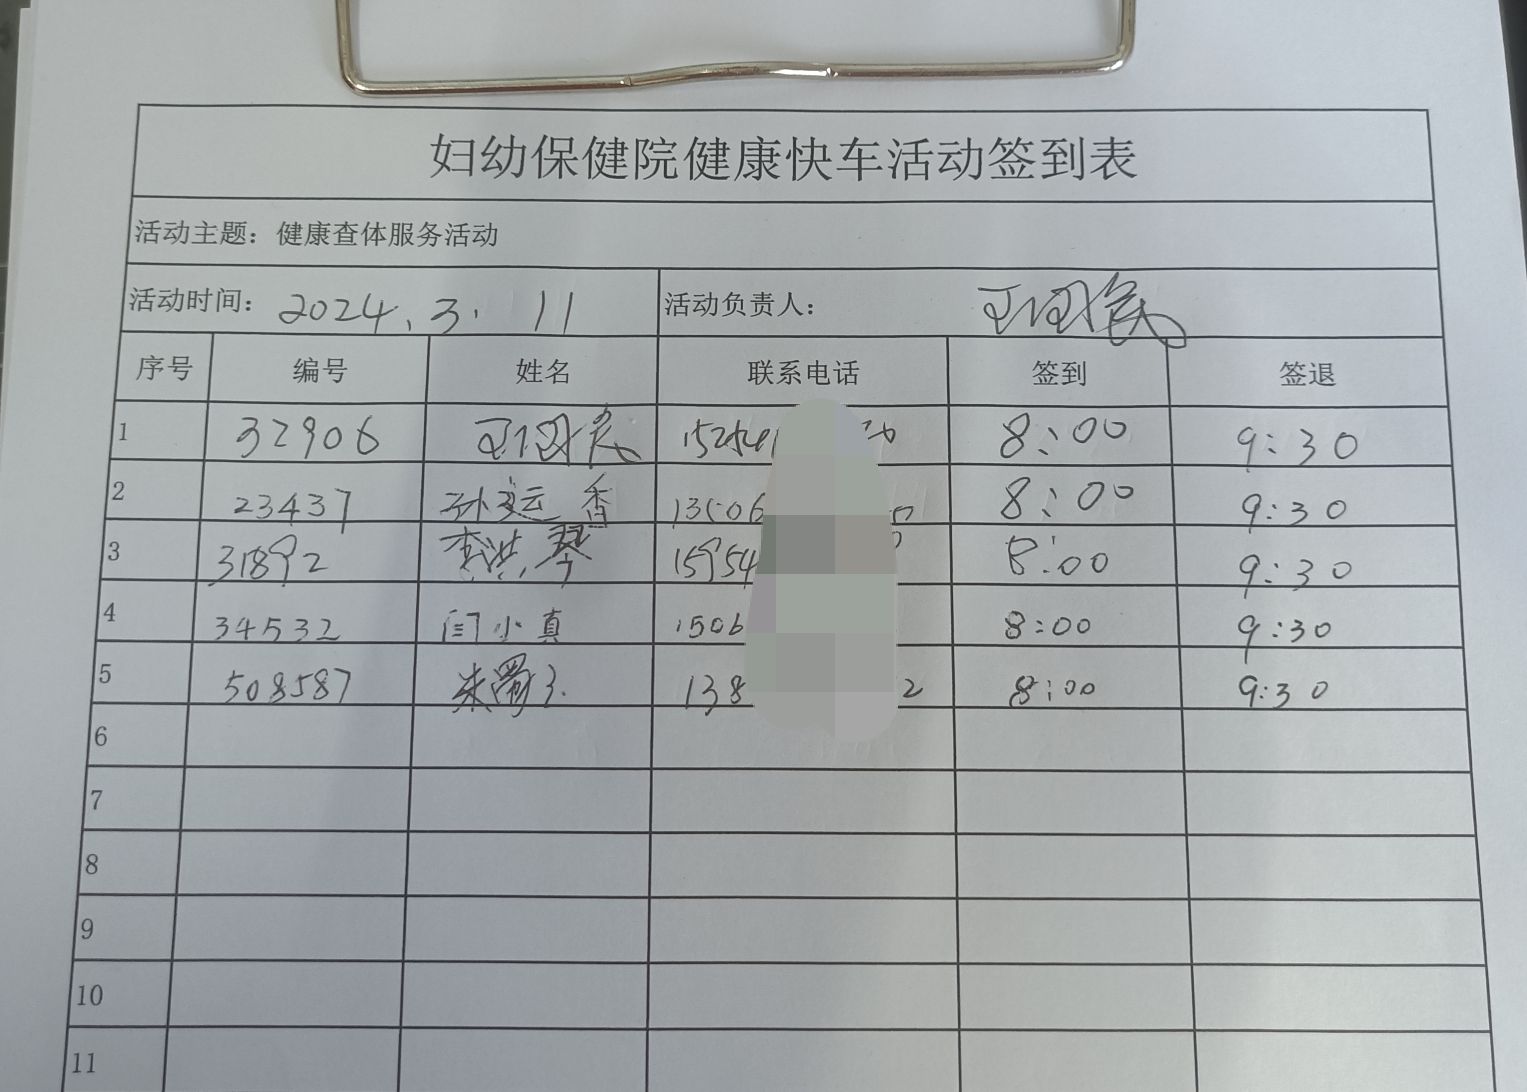 妇幼保健院健康快车活动签到表
活动主题：健康查体服务活动
活动时间：2024.3.11 活动负责人：
序号 编号 姓名 联系电话 签到 签退
1 32906 8:00 9:30
2 23437 孙运香 13506 8:00 9:30
3 31892 李洪琴 15954 8:00 9:30
4 34532 闫小真 1506 8:00 9:30
5 508587 138 2 8:00 9:30
6
7
8
9
10
11